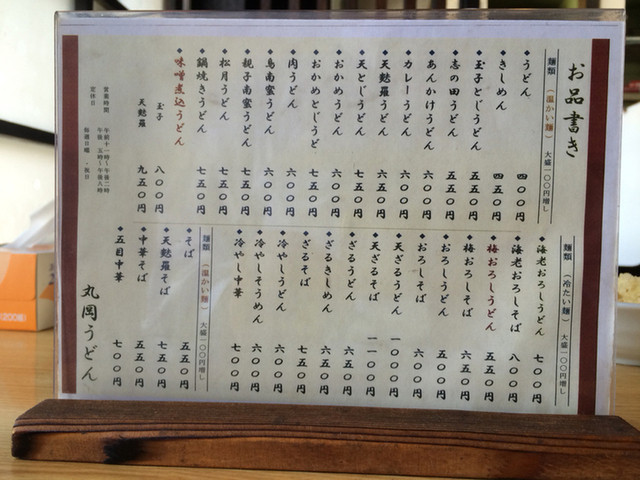 お品書き
麺類（温かい麺）大盛一〇〇円増し
◆うどん 四〇〇円
◆きしめん 四五〇円
◆玉子とじうどん 五五〇円
◆志の田うどん 五五〇円
◆あんかけうどん 六〇〇円
◆カレーうどん 六〇〇円
◆天麩羅うどん 六五〇円
◆天とじうどん 七五〇円
◆おかめうどん 六〇〇円
◆おかめとじうどん 七五〇円
◆肉うどん 六〇〇円
◆鳥南蛮うどん 六〇〇円
◆親子南蛮うどん 七五〇円
◆松月うどん 七五〇円
◆鍋焼きうどん 七五〇円
◆味噌煮込うどん
玉子 八〇〇円
天麩羅 九五〇円
営業時間 午前十一時〜午後二時
午後 五時〜午後八時
定休日 毎週日曜・祝日
麺類（冷たい麺）大盛一〇〇円増し
◆海老おろしうどん 七〇〇円
◆海老おろしそば 八〇〇円
◆梅おろしうどん 五五〇円
◆梅おろしそば 六五〇円
◆おろしうどん 五〇〇円
◆おろしそば 六〇〇円
◆天ざるうどん 一〇〇〇円
◆天ざるそば 一一〇〇円
◆ざるうどん 六五〇円
◆ざるきしめん 六五〇円
◆ざるそば 七五〇円
◆冷やしうどん 六〇〇円
◆冷やしそうめん 六〇〇円
◆冷やし中華 七〇〇円
麺類（温かい麺）大盛一〇〇円増し
◆そば 五五〇円
◆天麩羅そば 七五〇円
◆中華そば 五五〇円
◆五目中華 七〇〇円
丸岡うどん